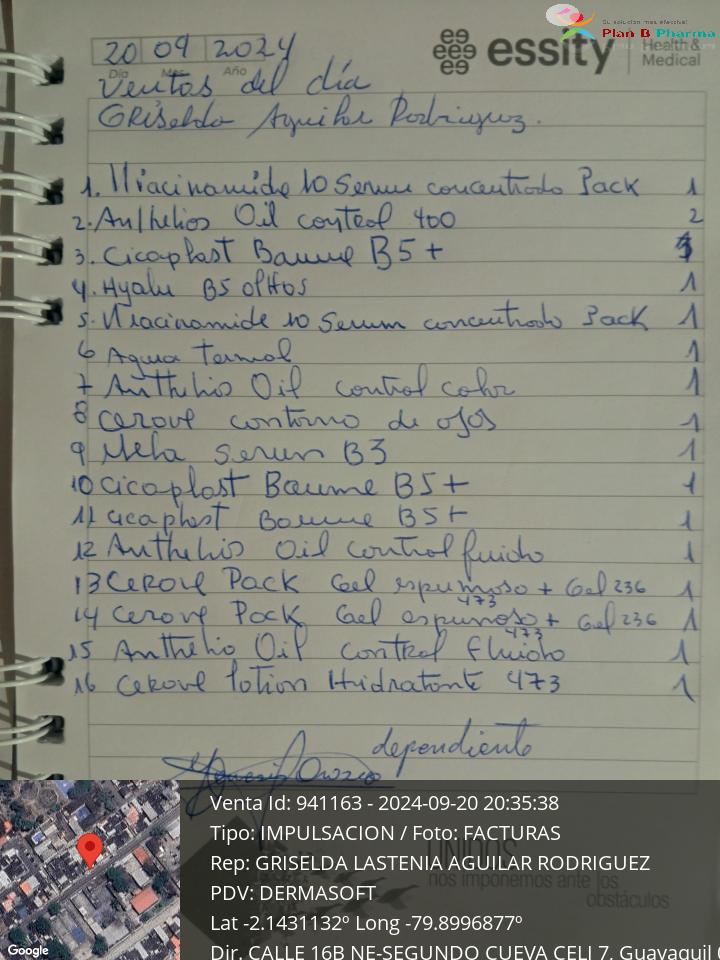 Su solución más efectiva!
Plan B Pharma
essity
Health &
Medical
20 09 2024
Día Mes Año
Ventas del día
GRiselda Aguilar Rodriguez.
1. Niacinamide 10 Serum concentrado Pack 1
2. Anthelios Oil control 400 2
3. Cicaplast Baume B5+
4. Hyalu B5 olHos 1
5. Niacinamide 10 Serum concentrado Pack 1
6 Agua Termal 1
7 Anthelio Oil control color 1
8 Cerave contorno de ojos 1
9 Mela Serum B3 1
10 Cicaplast Baume B5+ 1
11 cicaplast Baume B5+ 1
12 Anthelio Oil control fluido 1
13 CeRave Pack Gel espumoso 473 + Gel 236 1
14 Cerave Pack Gel espumoso 473 + Gel 236 1
15 Anthelio Oil control Fluido 1
16 CeRave lotion Hidratante 473 1
dependiente
Orozco
UNIDOS
nos imponemos ante los
obstáculos
Google
Venta Id: 941163 - 2024-09-20 20:35:38
Tipo: IMPULSACION / Foto: FACTURAS
Rep: GRISELDA LASTENIA AGUILAR RODRIGUEZ
PDV: DERMASOFT
Lat -2.1431132º Long -79.8996877º
Dir. CALLE 16B NE-SEGUNDO CUEVA CELI 7, Guayaquil